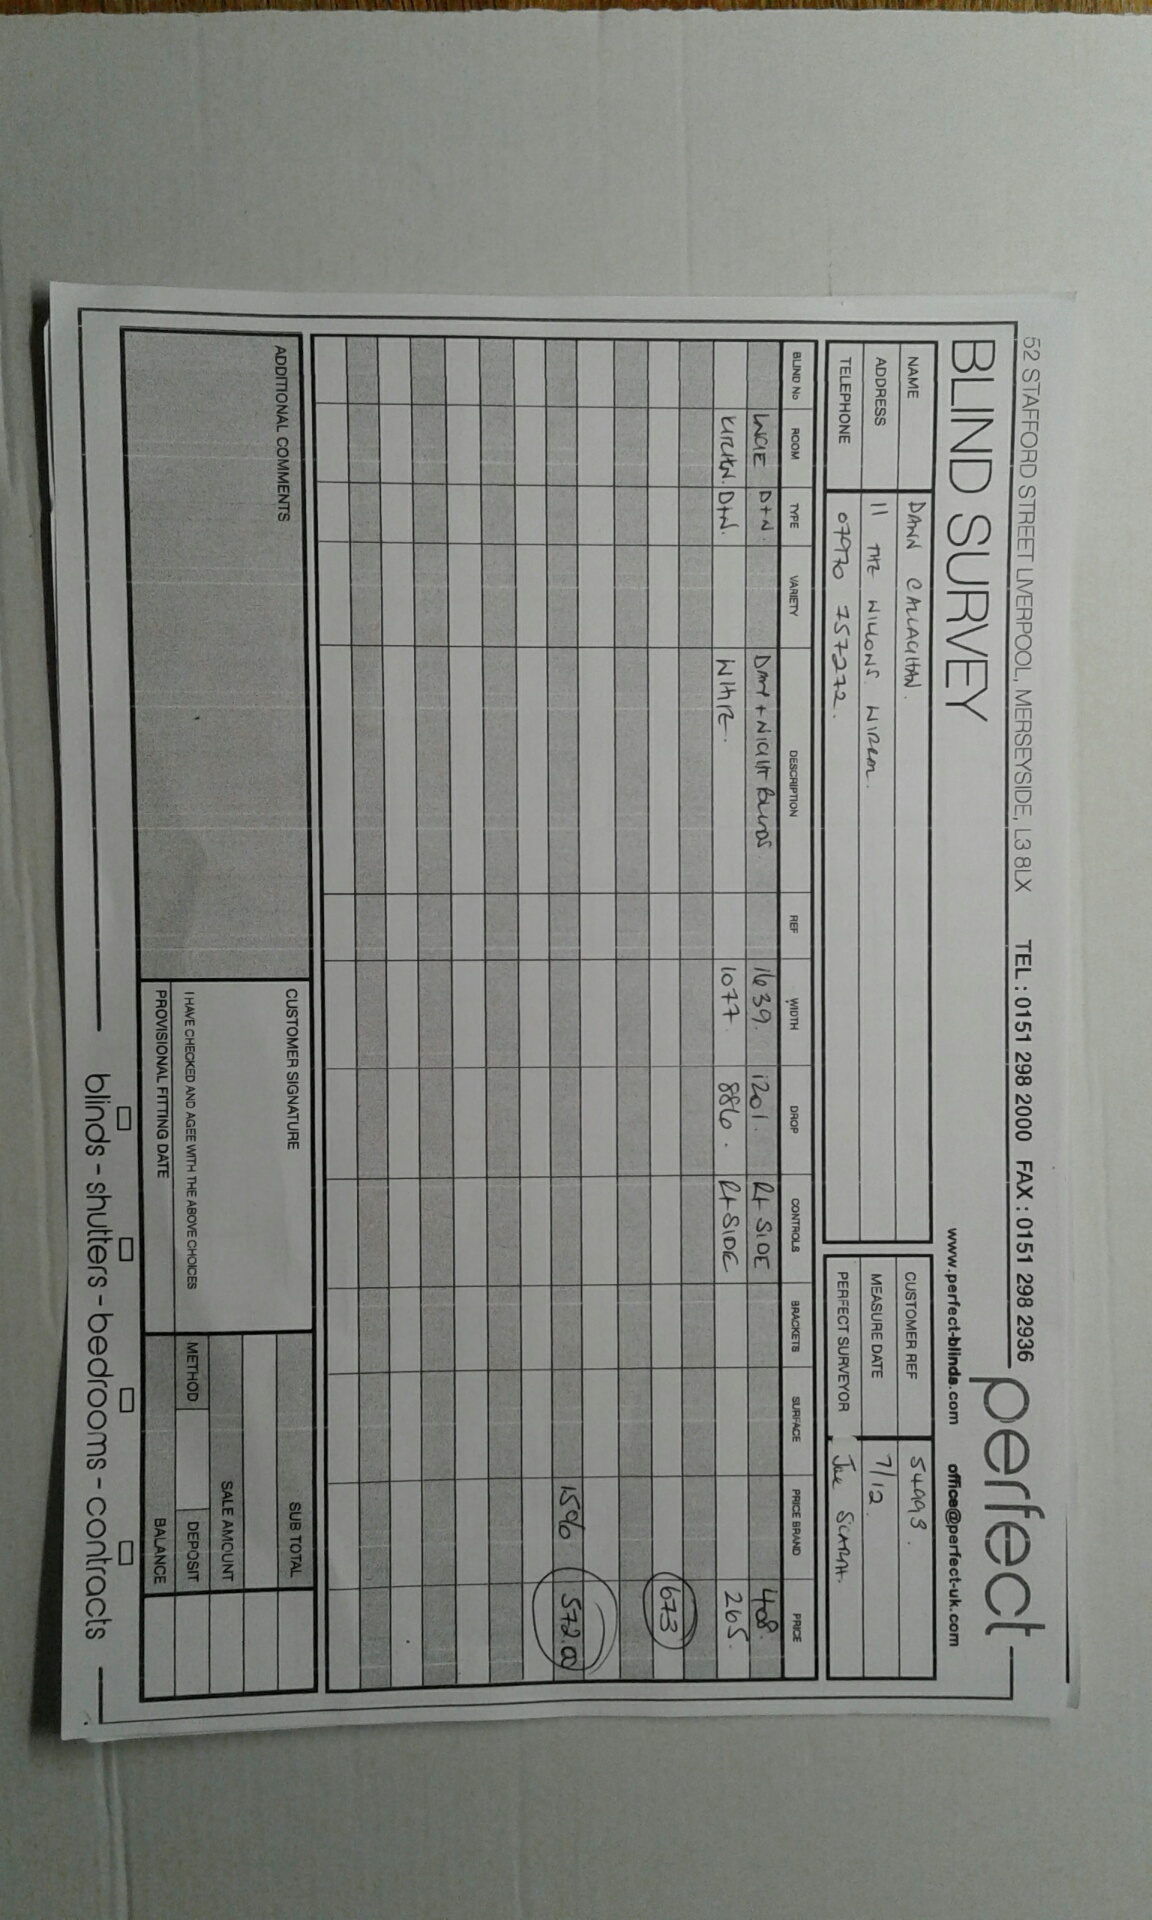 52 STAFFORD STREET LIVERPOOL, MERSEYSIDE, L3 8LX TEL : 0151 298 2000 FAX : 0151 298 2936 perfect
BLIND SURVEY
www.perfect-blinds.com office@perfect-uk.com
NAME DAWN CALLAGHAN. CUSTOMER REF 54993.
ADDRESS 11 THE WILLOWS. WIRRAL. MEASURE DATE 7/12.
TELEPHONE 07970 757272. PERFECT SURVEYOR
BLIND No ROOM TYPE VARIETY DESCRIPTION REF WIDTH DROP CONTROLS BRACKETS SURFACE PRICE BRAND PRICE
D+N. DAY + NIGHT BLINDS 1639. 1201. Rt SIDE 408.
KITCHN. D+N. WHITE. 1077. 886. Rt SIDE 265.
673
15% 572.00
ADDITIONAL COMMENTS CUSTOMER SIGNATURE SUB TOTAL
SALE AMOUNT
I HAVE CHECKED AND AGEE WITH THE ABOVE CHOICES METHOD DEPOSIT
PROVISIONAL FITTING DATE BALANCE
blinds - shutters - bedrooms - contracts